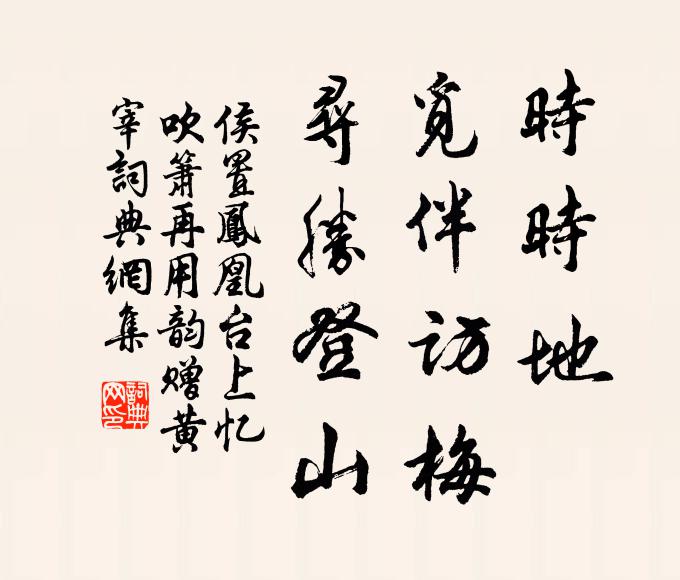 時時地
覓伴訪梅
尋勝登山
侯置鳳凰台上忆
吹簫再用韵赠黄
宰詞典網集
詞典网印